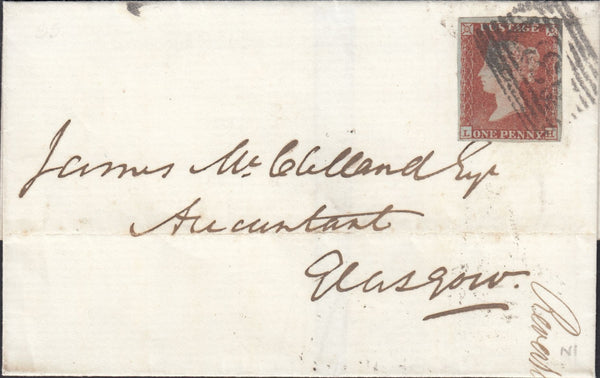 POSTAGE
L H
ONE PENNY
James McClelland Esqr
Accountant
Glasgow.